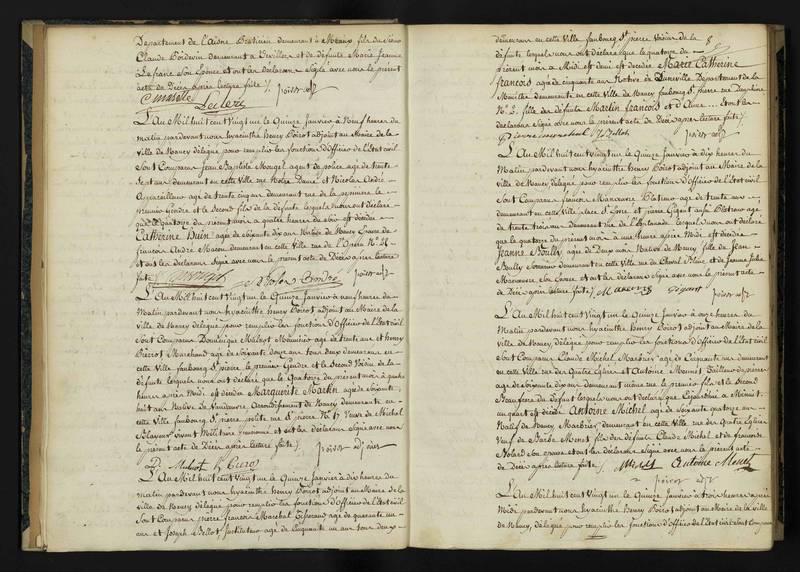 Département de l'Aisne Praticien demeurant à Meaux fils de
Claude Bordevin demeurant à Devillers et de défunte Marie Jeanne
Lefranc son Epouse et ont les déclarans signé avec nous le présent
acte de Décès après lecture faite /.
Leclerc
L'An Mil huit cent vingt un le Quinze Janvier à neuf heures du
matin pardevant nous hyacinthe henry Poirot adjoint au Maire de la
ville de Nancy délégué pour remplir les fonctions d'Officier de l'état civil
Sont Comparus Jean Baptiste Mougel agent de police agé de trente
Sept ans demeurant en cette Ville rue Notre Dame et Nicolas André
agé de trente cinq ans demeurant rue de la pepiniere le
premier Gendre et le Second fils de la défunte lesquels nous ont déclaré
que le quatorze du present mois à quatre heures du soir est décédée
Catherine Huin agée de soixante dix ans Native de Nancy Epouse de
françois André Macon demeurant en cette Ville rue de l'Opera N.º 21
et ont les déclarans Signé avec nous le present acte de Décès après lecture
faite /.
L'An Mil huit cent Vingt un le Quinze Janvier à neuf heures du
Matin pardevant nous hyacinthe henry Poirot adjoint au Maire de la
ville de Nancy délégué pour remplir les fonctions d'Officier de l'état civil
Sont Comparus Dominique Malnot Menuisier agé de trente ans et henry
Marchand agé de soixante douze ans tous deux demeurans en
cette Ville faubourg St pierre, le premier Gendre et le Second Voisin de la
défunte lesquels nous ont déclaré que le Quatorze du présent mois à quatre
heures après Midi est décédée Marguerite Martin agée de soixante
huit ans Native de Vandœuvre, Arrondissement de Nancy demeurante en
cette Ville faubourg St pierre, porte rue St pierre N.º 17 Veuve de Michel
vivant Militaire et ont les déclarans signé avec nous
le présent acte de Décès après lecture faite /.
D. Malnot h
L'An Mil huit cent Vingt un le Quinze Janvier à dix heures du
matin pardevant nous hyacinthe henry Poirot adjoint au Maire de la
ville de Nancy délégué pour remplir les fonctions d'Officier de l'état civil
Sont Comparus pierre françois Marechal Tisserand agé de quarante un
ans et Joseph Bellot Instituteur agé de Cinquante un ans tous deux
demeurans en cette Ville faubourg St pierre Voisins de la
défunte lesquels nous ont déclaré que le quatorze du
présent mois à Midi et demi est décédée Marie Catherine
françois agée de cinquante ans Native de Luneville Département de la
Meurthe demeurante en cette Ville de Nancy faubourg St pierre rue Dauphine
N.º 2. fille des défunts Martin françois et d'Anne ... et ont les
déclarans Signé avec nous le présent acte de Décès après lecture faite /.
L'An Mil huit cent Vingt un le Quinze Janvier à dix heures du
Matin pardevant nous hyacinthe henry Poirot adjoint au Maire de la
ville de Nancy délégué pour remplir les fonctions d'Officier de l'état civil
Sont Comparus francois Plateau agé de trente
demeurant en cette Ville place St Jean et pierre Gigout aussi Plateau agé
de trente trois ans demeurant rue de lesquels nous ont déclaré
que le quatorze du présent mois à une heure après Midi est décédée
Jeanne Boully agée de Deux mois Native de Nancy fille de Jean
Boully demeurant en cette Ville rue du Cheval Blanc et de Jeanne Julie
son Epouse et ont les déclarans signé avec nous le présent acte
de Décès après lecture faite /.
L'An Mil huit cent Vingt un le Quinze Janvier à onze heures du
Matin pardevant nous hyacinthe henry Poirot adjoint au Maire de la
ville de Nancy délégué pour remplir les fonctions d'Officier de l'état civil
Sont Comparus Claude Michel Marbrier agé de Cinquante ans demeurant
en cette Ville rue des Quatre Eglises et Antoine Monet Tailleur de pierres
agé de soixante dix ans demeurant même rue le premier fils et le Second
Beau frere du défunt lesquels nous ont déclaré que à Minuit
un quart est décédé Antoine Michel agé de soixante quatorze ans
Natif de Nancy Marbrier demeurant en cette Ville rue des Quatre Eglises
Veuf de Barbe Monet fils des défunts Claude Michel et de françoise
Nolard Son Epouse et ont les déclarans signé avec nous le présent acte
de Décès après lecture faite /. Michel Antoine Monet
L'An Mil huit cent Vingt un le Quinze Janvier à trois heures après
Midi pardevant nous hyacinthe henry Poirot adjoint au Maire de la ville
de Nancy, délégué pour remplir les fonctions d'Officier de l'état civil Sont Comparus